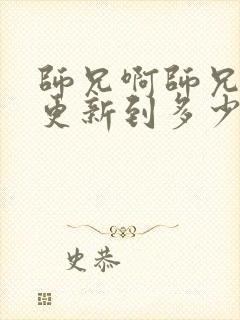 師兄啊師兄
更新到多少
史恭